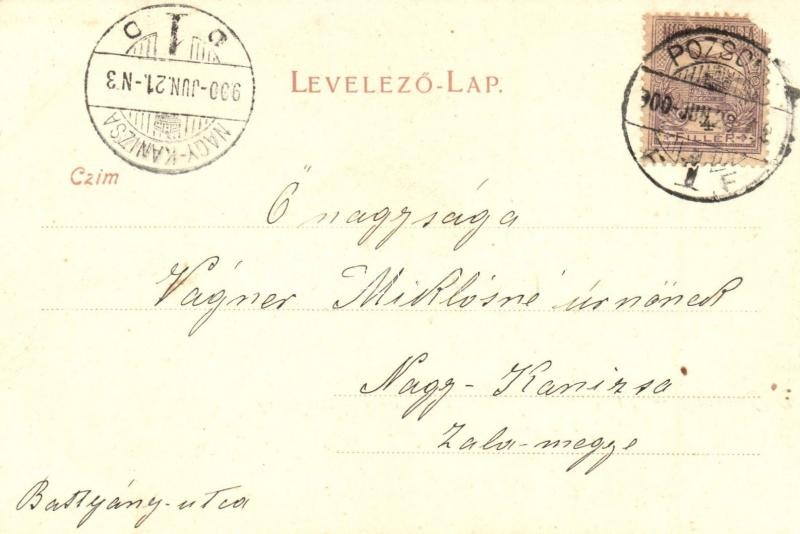 LEVELEZŐ-LAP.
NAGY-KANIZSA
900-JUN.21.-N3
POZSO
FILLER
Czím
Ő nagysága
Vágner Miklósné úrnőnek
Nagy-Kanizsa
Zala-megye
Battyány-utca